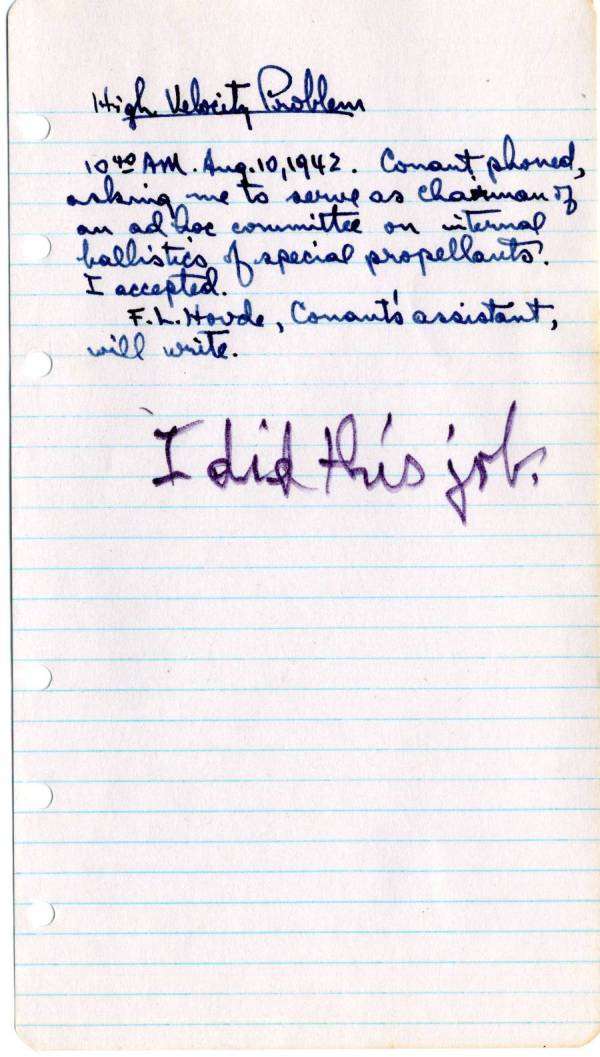 High Velocity Problem
10⁴⁰ AM. Aug. 10, 1942. Conant phoned,
asking me to serve as chairman of
an ad hoc committee on internal
ballistics of special propellants.
I accepted.
F. L. Hovde, Conant's assistant,
will write.
I did this job.